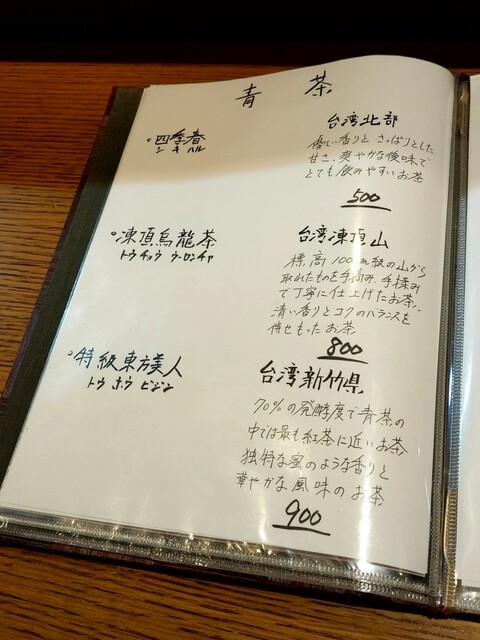 青茶
。四季春
シキハル
台湾北部
優しい香りとさっぱりとした
甘さ、爽やかな後味で
とても飲みやすいお茶
500
。凍頂烏龍茶
トウチョウ ウーロンチャ
台湾凍頂山
標高1000m級の山から
取れたものを手摘み、手揉み
で丁寧に仕上げたお茶。
清い香りとコクのバランスを
併せもったお茶
800
。特級東方美人
トウ ホウ ビジン
台湾新竹県
70%の発酵度で青茶の
中では最も紅茶に近いお茶
独特な蜜のような香りと
華やかな風味のお茶
900